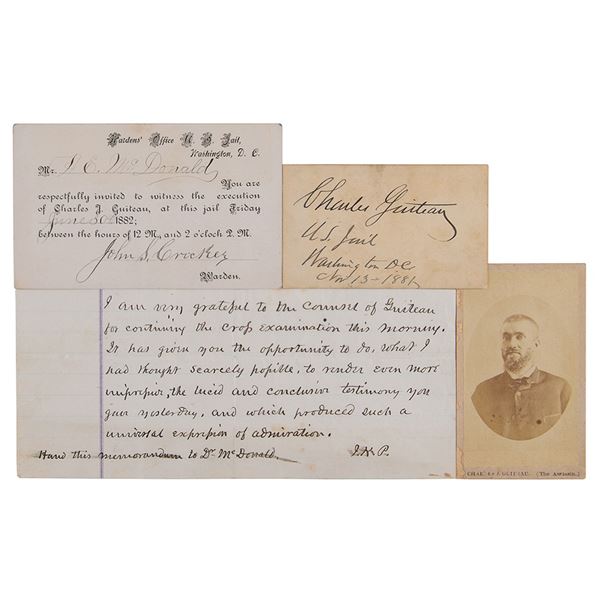 Wardens' Office U. S. Jail,
Washington, D. C.
Mr. W. E. McDonald
You are
respectfully invited to witness the execution
of Charles J. Guiteau, at this jail Friday
June 30th 1882;
between the hours of 12 M., and 2 o'clock P.M.
John S. Crocker
Warden.
Charles Guiteau
U.S. Jail
Washington D.C.
Nov 13-1881
I am very grateful to the Counsel of Guiteau
for continuing the cross examination this morning.
It has given you the opportunity to do, what I
had thought scarcely possible, to render even more
impressive, the lucid and conclusive testimony you
gave yesterday, and which produced such a
universal expression of admiration.
Hand this memorandum to Dr McDonald.
J. P.
CHAS. J. GUITEAU. (The Assassin.)